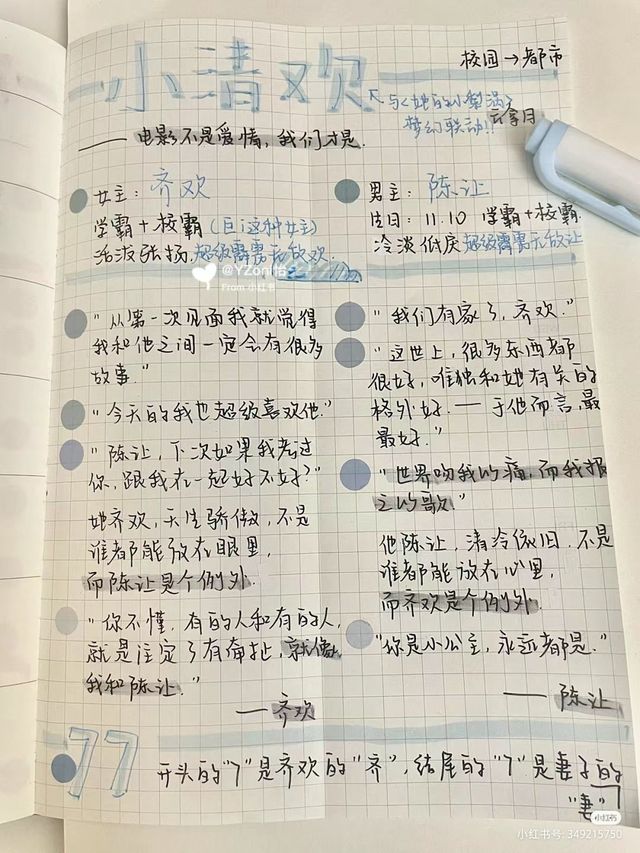 小清欢
校园→都市
与《她的小梨涡》
梦幻联动!!
—— 电影不是爱情，我们才是.
女主：齐欢
学霸+校霸(巨i这种女主)
活泼张扬.超级霹雳无敌欢.
男主：陈让
生日：11.10 学霸+校霸
冷淡低戾 超级霹雳无敌让
@YZonli6
From 小红书
"从第一次见面我就觉得
我和他之间一定会有很多
故事."
"今天的我也超级喜欢他."
"陈让，下次如果我考过
你，跟我在一起好不好?"
她齐欢，天生骄傲，不是
谁都能放在眼里，
而陈让是个例外.
"你不懂，有的人和有的人，
就是注定了有牵扯，就像
我和陈让."
——齐欢
"我们有家了，齐欢."
"这世上，很多东西都
很好，唯独和她有关的
格外好.—于他而言，最
最好."
"世界吻我以痛，而我报
之以歌"
他陈让，清冷依旧.不是
谁都能放在心里，
而齐欢是个例外.
"你是小公主，永远都是."
——陈让
77
开头的"7"是齐欢的"齐"，结尾的"7"是妻子的
"妻"
小红书
小红书号: 349215750